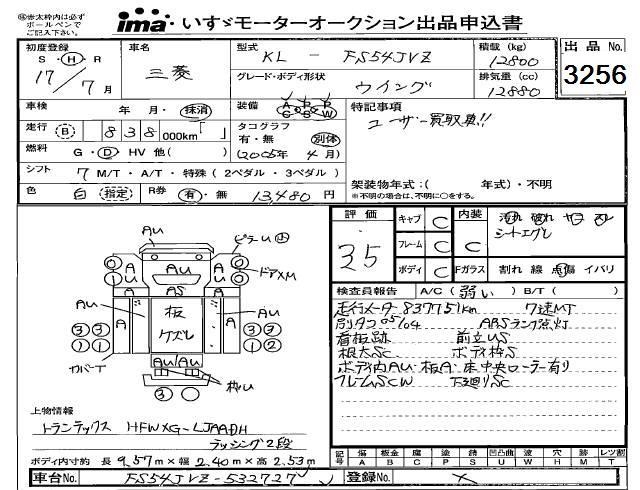 ㊟赤太枠内は必ず
ボールペンで
ご記入下さい。
ima いすゞモーターオークション出品申込書
初度登録 車名 型式 KL - FS54JVZ 積載 (kg) 12800 出品 No.
S・H・R 17/7月 三菱 グレード・ボディ形状 ウイング 排気量 (cc) 12880 3256
車検 年 月・抹消 装備 A C P S P W 特記事項
走行 (B) 838 000km「 」 タコグラフ 有・無 別体 ユーザー買取車!!
燃料 G・D・HV 他( ) (2005年 4月)
シフト 7 M/T・A/T・特殊(2ペダル・3ペダル) 架装物年式:( 年式)・不明
※不明の場合は、不明に○をする。
色 白 (指定) R券 有・無 13,480 円
評価 35 キャブ C 内装 C 汚れ 破れ ヤコ スレ
シートエグレ
フレーム C
ボディ C Fガラス 割れ 線 点傷 イバリ
検査員報告 A/C(弱い) B/T( )
走行メーター837751km 7速MT
別タコ05/04 ABSランプ点灯
看板跡 前立US
根太SC ボディ枠S
ボディ内AU・板A・床中央ローラー有り
フレームSCW 下廻りSC
AU ピラーU㊤
ドアXM
AU
A
U
AS
板
ケズレ
カバーT
AU/AU
枠U
上物情報
トランテックス HFWXG-LJAADH
ラッシング2段
ボディ内寸約 長 9.57m×幅 2.40m×高 2.53m
記号 傷 A 板金 B 腐 C 塗 P サビ S 凹凸曲 U 波 W 穴 H 交 M レツ割 T
車台No. FS54JVZ-532727 登録No. ×